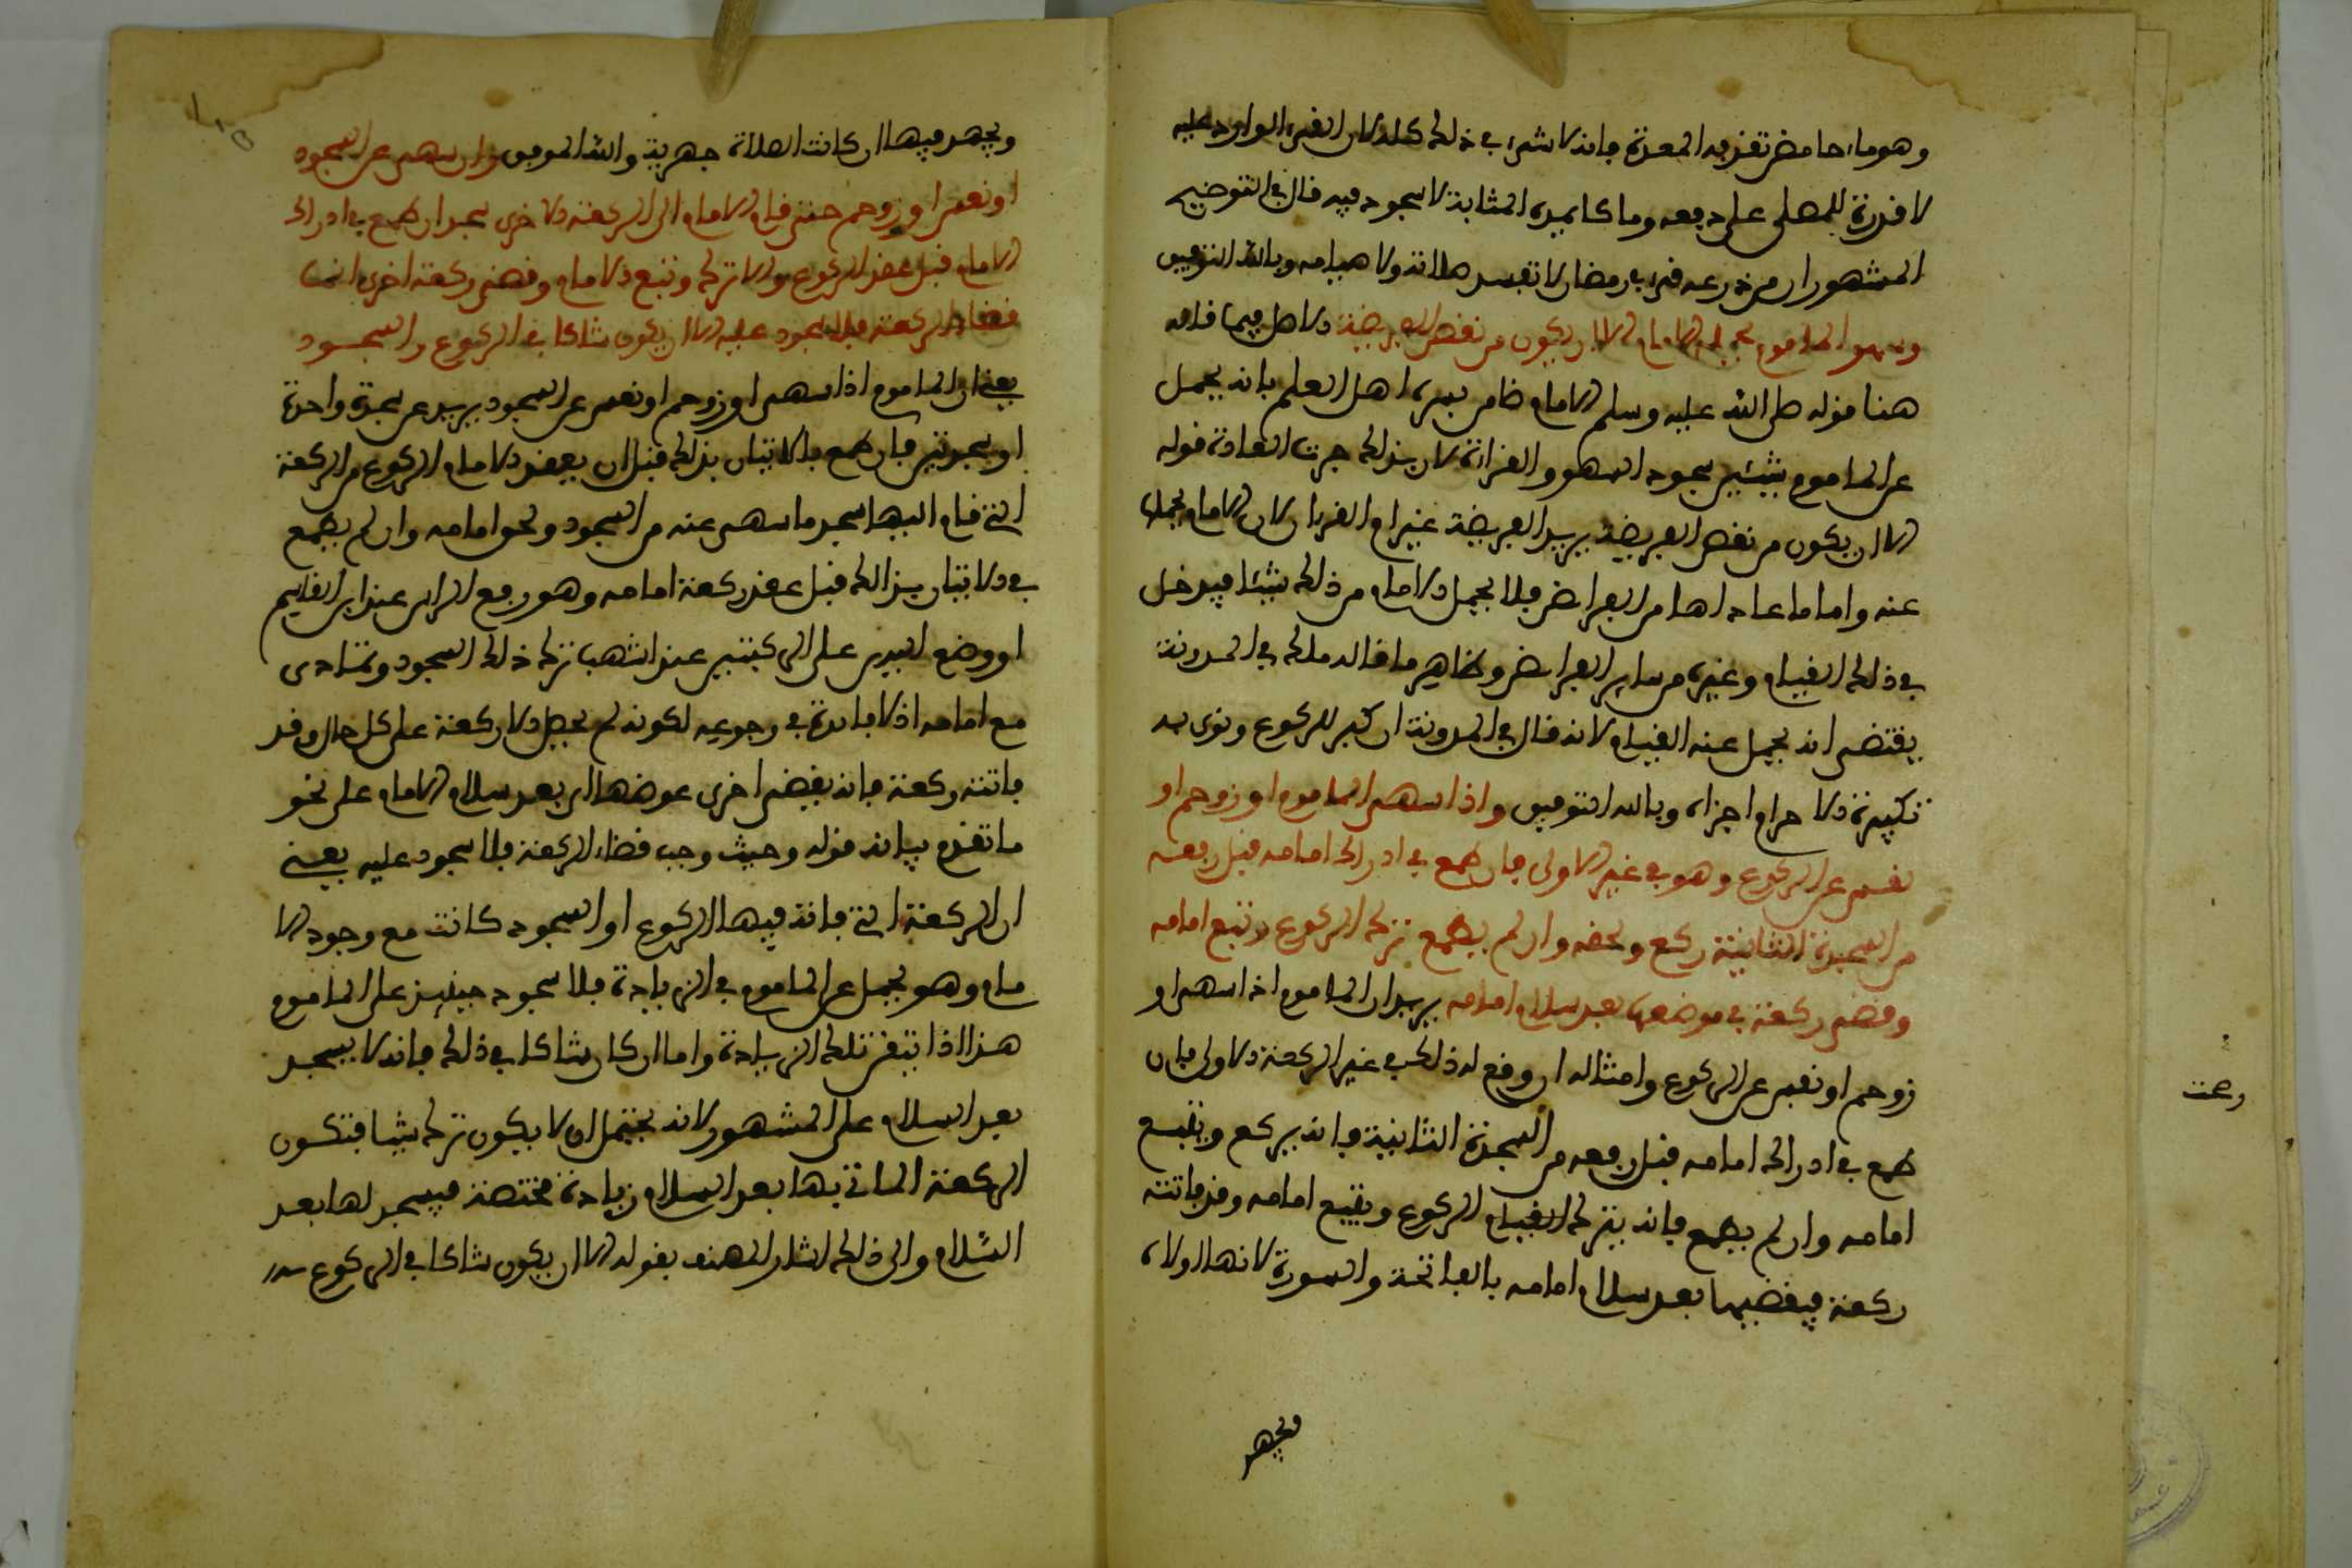 وهو ماء حامض تقذفه المعدة فانه لا شيء في ذلك كله لان القيء الوارد عليه
لا قدرة للمصلي على دفعه وما كا يميزه المثابة لا سجود فيه قال في التوضيح
المشهور ان من ذرعه قيء في رمضان لا تفسد صلاته ولا صيامه وبالله التوفيق
وسهو الماموم يحمله الامام الا ان يكون من نقص الفريضة الاصل فيما قاله
هنا قوله صلى الله عليه وسلم الامام ضامن يريد اهل العلم بانه يحمل
عن الماموم شيئين سجود السهو والقراءة لان بذلك جرت العادة قوله
الا ان يكون من نقص الفريضة يريد الفريضة غير ام القرءان لان الامام يحملها
عنه واما ما عداها من الفرائض فلا يحمل الامام من ذلك شيئا فيدخل
في ذلك القيام وغيره من ساير الفرائض وظاهر ما قاله مالك في المدونة
يقتضي انه يحمل عنه القيام لانه قال في المدونة ان كبر للركوع ونوى به
تكبيرة الاحرام اجزاه وبالله التوفيق واذا سهى الماموم او زوحم او
نعس عن الركوع وهو في غير الاولى فان طمع في ادراك امامه قبل رفعه
من السجدة الثانية ركع ولحقه وان لم يطمع ترك الركوع وتبع امامه
وقضى ركعة في موضعها بعد سلام امامه يريد ان الماموم اذا سهى او
زوحم او نعس عن الركوع وامثاله ان وقع له ذلك في غير الركعة الاولى فان
طمع في ادراك امامه قبل رفعه من السجدة الثانية فانه يركع ويتبع
امامه وان لم يطمع فانه يترك القيام الركوع ويتبع امامه وقد فاتته
ركعة فيقضيها بعد سلام امامه بالفاتحة والسورة لانها اولاه
ويجهر
ويجهر فيها ان كانت الصلاة جهرية والله الموفق وان سهى عن السجود
او نعس او زوحم حتى قام الامام الى الركعة الاخرى سجد ان طمع في ادراك
الامام قبل عقد الركوع والا تركه وتبع الامام وقضى ركعة اخرى ايضا
فقضاء الركعة فلا سجود عليه الا ان يكون شاكا في الركوع والسجود
يعني ان الماموم اذا سهى او زوحم او نعس عن السجود يريد عن سجدة واحدة
او سجدتين فان طمع بالاتيان بذلك قبل ان يعقد الامام الركوع من الركعة
التي قام اليها سجد ما سهى عنه من السجود ولحق امامه وان لم يطمع
في الاتيان بذلك قبل عقد ركعة امامه وهو رفع الراس عند ابن القاسم
او وضع اليدين على الركبتين عند اشهب ترك ذلك السجود وتمادى
مع امامه اذ لا فايدة في رجوعه لكونه لم يحصل الا ركعة على كل حال وقد
فاتته ركعة فانه يقضي اخرى عوضها الى بعد سلام الامام على نحو
ما تقدم بيانه قوله وحيث وجب قضاء الركعة فلا سجود عليه يعني
ان الركعة التي فاته فيها الركوع او السجود كانت مع وجود الا
مام وهو يحمل عن الماموم في الزيادة فلا سجود حينيذ على الماموم
هذا اذا تيقن تلك الزيادة واما ان كان شاكا في ذلك فانه لا يسجد
بعد السلام على المشهور لانه يحتمل ان لا يكون ترك شيئا فتكون
الركعة الماتي بها بعد السلام زيادة مختصة فيسجد لها بعد
السلام والى ذلك اشار المصنف بقوله الا ان يكون شاكا في الركوع